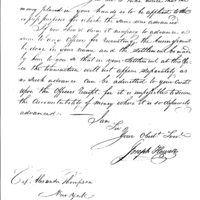 money placed in your hands is to be applied to the
purposes for which the same were advanced
If you should deem it necessary to advance a
sum to any officer for recruiting, the
be clear in your name and the settlement be made
by him to you so that in your settlement at this of
fice the transaction will not appear separately as
no such advance can be admitted to your credit
upon the officers receipt, for it is impossible to secure
the accountability of money where it is so differently
advanced
I am
Sir
Your Obedt Servt
Joseph Howell
Capt Alexander Thompson
New York